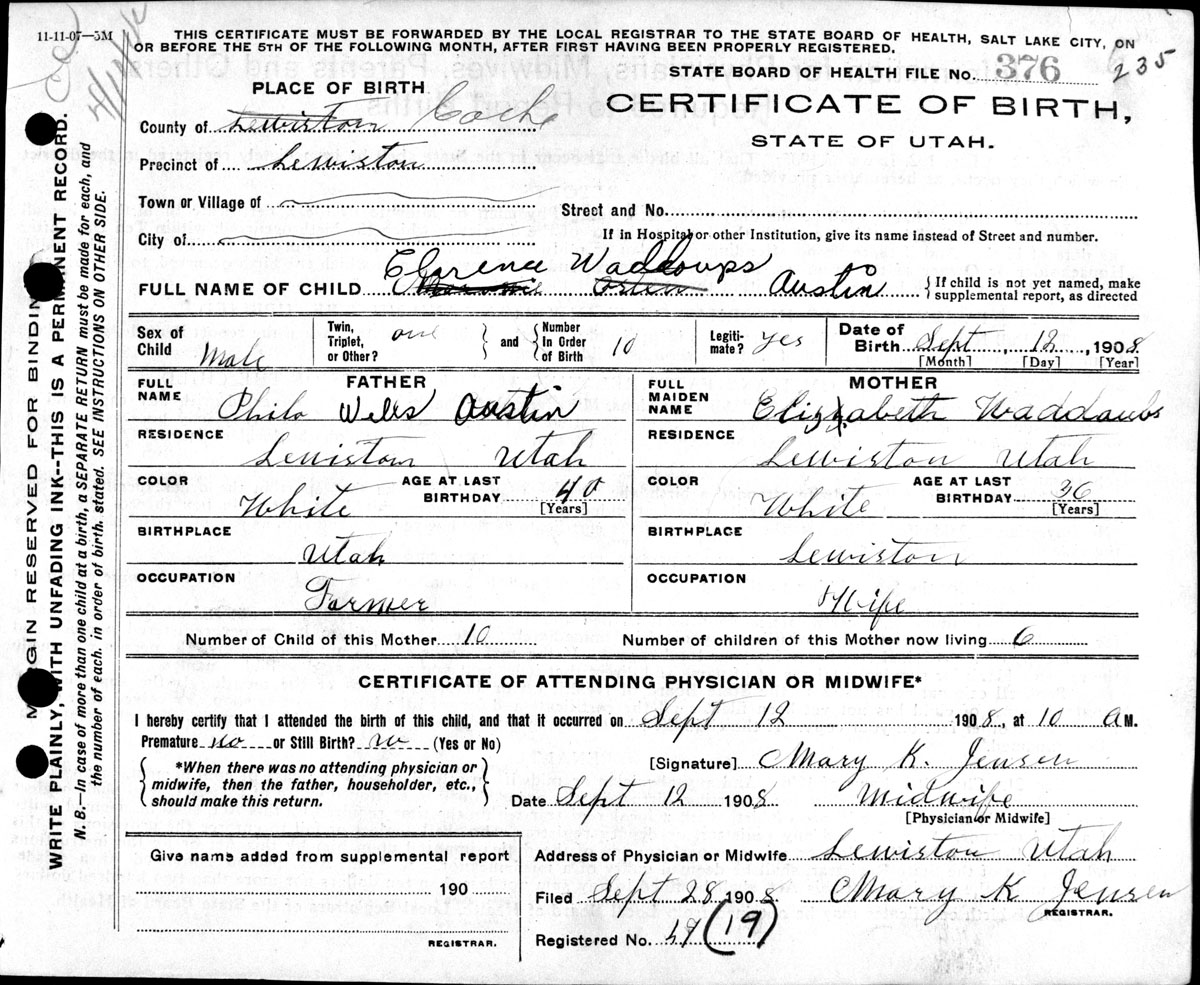 11-11-07—5M
THIS CERTIFICATE MUST BE FORWARDED BY THE LOCAL REGISTRAR TO THE STATE BOARD OF HEALTH, SALT LAKE CITY, ON
OR BEFORE THE 5TH OF THE FOLLOWING MONTH, AFTER FIRST HAVING BEEN PROPERLY REGISTERED.
STATE BOARD OF HEALTH FILE No. 376 235
PLACE OF BIRTH
CERTIFICATE OF BIRTH,
STATE OF UTAH.
County of Lewiston Cache
Precinct of Lewiston
Town or Village of
Street and No.
City of
If in Hospital or other Institution, give its name instead of Street and number.
Clarence Waddoups
FULL NAME OF CHILD Orten Austin { If child is not yet named, make supplemental report, as directed
Sex of Child Male Twin, Triplet, or Other? one } and { Number In Order of Birth 10 Legiti- mate? yes Date of Birth Sept, 12, 1908
[Month] [Day] [Year]
FATHER MOTHER
FULL NAME Philo Wells Austin FULL MAIDEN NAME Elizabeth Waddoubs
RESIDENCE Lewiston Utah RESIDENCE Lewiston Utah
COLOR White AGE AT LAST BIRTHDAY 40 [Years] COLOR White AGE AT LAST BIRTHDAY 36 [Years]
BIRTHPLACE Utah BIRTHPLACE Lewiston
OCCUPATION Farmer OCCUPATION H Wife
Number of Child of this Mother 10 Number of children of this Mother now living 6
CERTIFICATE OF ATTENDING PHYSICIAN OR MIDWIFE*
I hereby certify that I attended the birth of this child, and that it occurred on Sept 12 1908, at 10 A M.
Premature no or Still Birth? no (Yes or No)
[Signature] Mary K. Jensen
{ *When there was no attending physician or midwife, then the father, householder, etc., should make this return. }
Date Sept 12 1908 Midwife
[Physician or Midwife]
Give name added from supplemental report
190
REGISTRAR.
Address of Physician or Midwife Lewiston Utah
Filed Sept 28 1908 Mary K Jensen
REGISTRAR.
Registered No. 49 (19)
MARGIN RESERVED FOR BINDING
WRITE PLAINLY, WITH UNFADING INK--THIS IS A PERMANENT RECORD.
N. B.—In case of more than one child at a birth, a SEPARATE RETURN must be made for each, and
the number of each. in order of birth. stated. SEE INSTRUCTIONS ON OTHER SIDE.